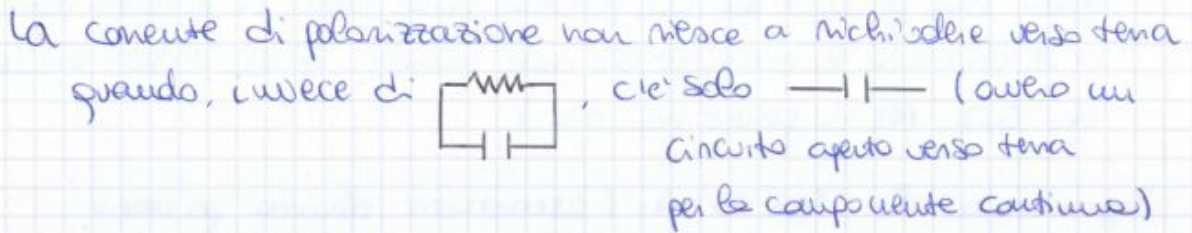 La corrente di polarizzazione non riesce a richiudere verso terra
quando, invece di , c'è solo (ovvero un
circuito aperto verso terra
per la componente continua)